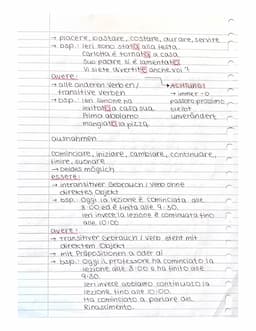 → piacere, bastare, costare, durare, servire
→ bsp.: Ieri sono stata alla festa.
Carlotta è tornata a casa.
Suo padre si è lamentato.
Vi siete divertite anche voi?
avere:
→ alle anderen Verben /
transitive Verben
→ ACHTUNG!
→ immer -o
→ bsp.: Ieri Simone ha
passato prossimo
invitato a casa sua.
bleibt
Prima abbiamo
unverändert
mangiato la pizza.
Ausnahmen
cominciare, iniziare, cambiare, continuare,
finire, suonare
→ beides möglich
essere:
→ intransitiver Gebrauch / Verb ohne
direktes Objekt
→ bsp.: Oggi la lezione è cominciata alle
8:00 ed è finita alle 9:30.
Ieri invece la lezione è continuata fino
alle 10:00.
avere:
→ transitiver Gebrauch / Verb steht mit
direktem Objekt
→ mit Präpositionen a oder di
→ bsp.: Oggi il professore ha cominciato la
lezione alle 8:00 e ha finito alle
9:30.
Ieri invece abbiamo continuato la
lezione fino alle 10:00.
Ha cominciato a parlare del
Rinascimento.